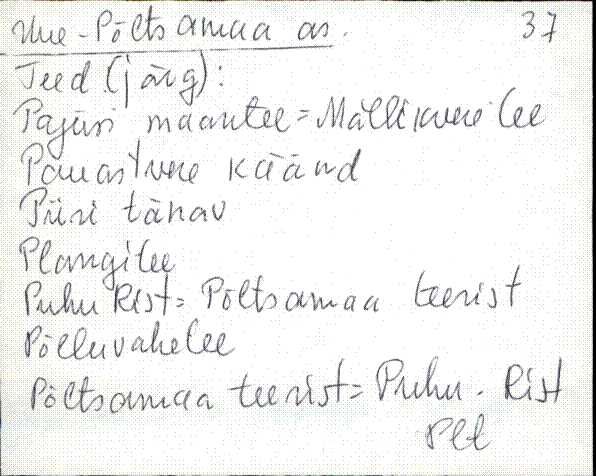 Uue-Põltsamaa as. 37
Teed (järg):
Pajusi maantee = Mällikvere tee
Pauastvere käänd
Piiri tänav
Plangitee
Puhu Rist = Põltsamaa teerist
Põlluvahetee
Põltsamaa teerist = Puhu Rist
Plt